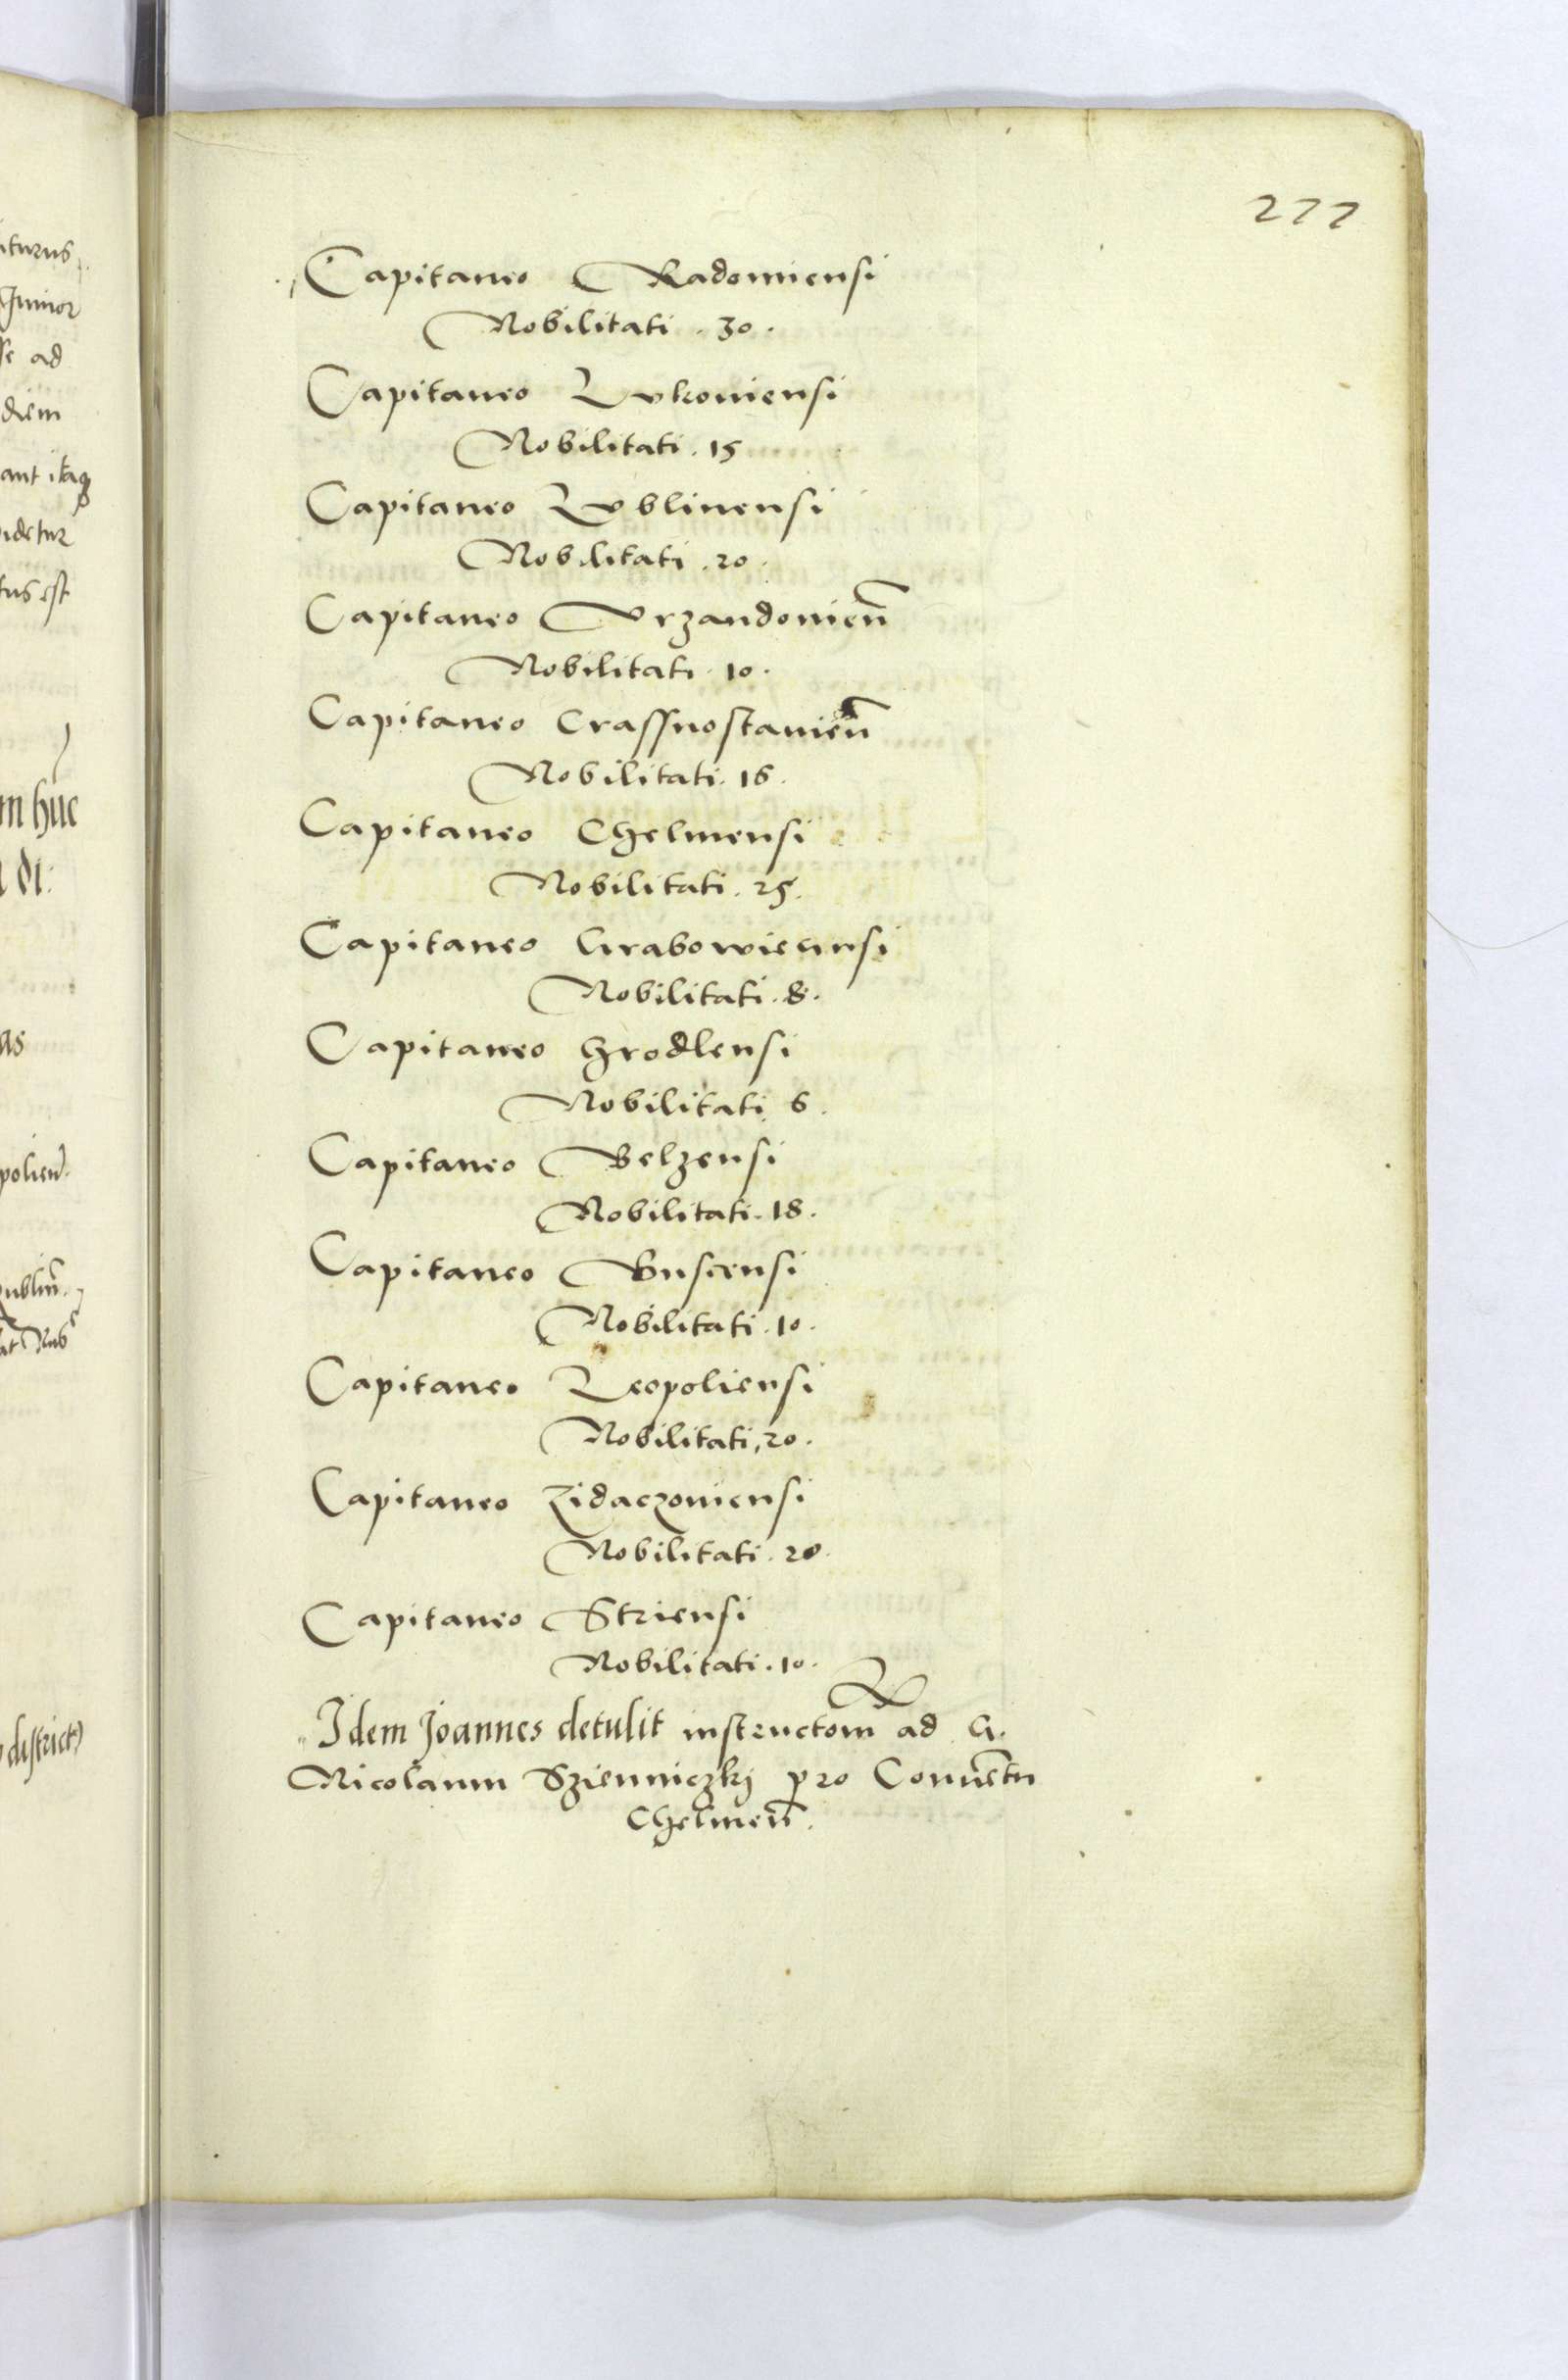 277
Capitaneo Radomiensi
Nobilitati . 30 .
Capitaneo Lvkoviensi
Nobilitati . 15
Capitaneo Lvblinensi
Nobilitati . 20 .
Capitaneo Vrzandovien̄
Nobilitati . 10 .
Capitaneo Crassnostavien̄
Nobilitati . 16 .
Capitaneo Chelmensi
Nobilitati . 25 .
Capitaneo Grabowiecensi
Nobilitati . 8 .
Capitaneo Hrodlensi
Nobilitati 6 .
Capitaneo Belzensi
Nobilitati . 18 .
Capitaneo Buscensi
Nobilitati . 10 .
Capitaneo Leopoliensi
Nobilitati , 20 .
Capitaneo Zidaczoviensi
Nobilitati . 20 .
Capitaneo Striensi
Nobilitati . 10 .
Idem Joannes detulit instructom̄ ad G.
Nicolaum Szienniczkj pro Convētu
Chelmen̄ .